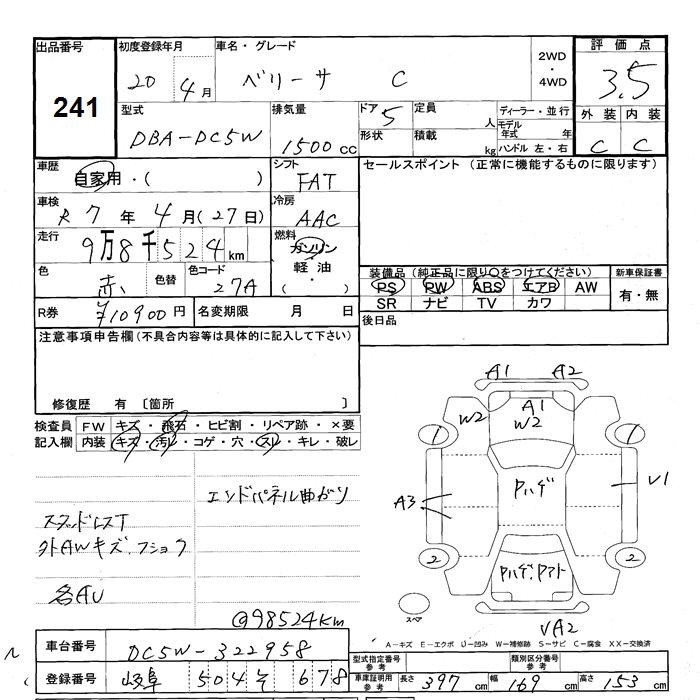 出品番号
241
初度登録年月
20年 4月
車名・グレード
ベリーサ C
2WD
・
4WD
評価点
3.5
型式
DBA-DC5W
排気量
1500cc
ドア 5
形状
定員 人
積載 kg
ディーラー・並行
モデル年式 年
ハンドル 左・右
外装 内装
C C
車歴
自家用・( )
シフト
FAT
セールスポイント (正常に機能するものに限ります)
車検
R 7年 4月(27日)
冷房
AAC
走行
9万8千524km
燃料
ガソリン
軽油
・( )
色
赤
色替
色コード
27A
装備品 (純正品に限り○をつけてください)
PS PW ABS エアB AW
SR ナビ TV カワ
新車保証書
有・無
R券 ¥10900円 名変期限 月 日
後日品
注意事項申告欄(不具合内容等は具体的に記入して下さい)
修復歴 有 〔箇所 〕
検査員記入欄
FW キズ・飛石・ヒビ割・リペア跡・×要
内装 キズ・汚レ・コゲ・穴・スレ・キレ・破レ
エンドパネル曲がり
スタッドレスT
外AWキズ.フショク
各AU
@98524km
A1 A2
W2
A1
W2
1 1
Pハゲ
V1
A3
2 2
Pハゲ.Pアト
スペア
VA2
A-キズ E-エクボ U-凹み W-補修跡 S-サビ C-腐食 XX-交換済
車台番号 DC5W-322958
登録番号 岐阜 504 そ 678
型式指定番号
参考
類別区分番号
参考
車庫証明用
参考
長さ 397cm 幅 169cm 高さ 153cm